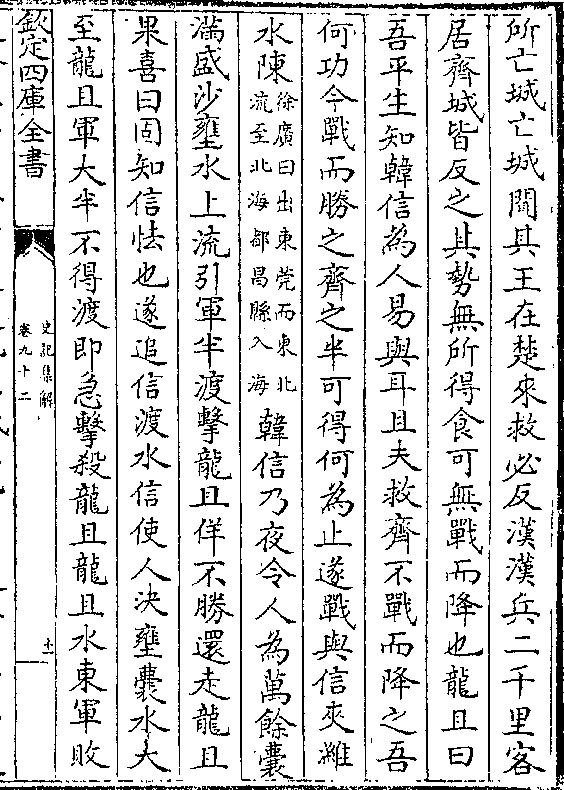 所亡城亡城聞其王在楚來救必反漢漢兵二千里客
居齊城皆反之其勢無所得食可無戰而降也龍且曰
吾平生知韓信為人易與耳且夫救齊不戰而降之吾
何功今戰而勝之齊之半可得何為止遂戰與信夾濰
水陳徐廣曰出東莞而東北流至北海都昌縣入海韓信乃夜令人為萬餘囊
滿盛沙壅水上流引軍半渡擊龍且佯不勝還走龍且
果喜曰固知信怯也遂追信渡水信使人決壅囊水大
至龍且軍大半不得渡即急擊殺龍且龍且水東軍敗
欽定四庫全書
史記集解
卷九十二
十一